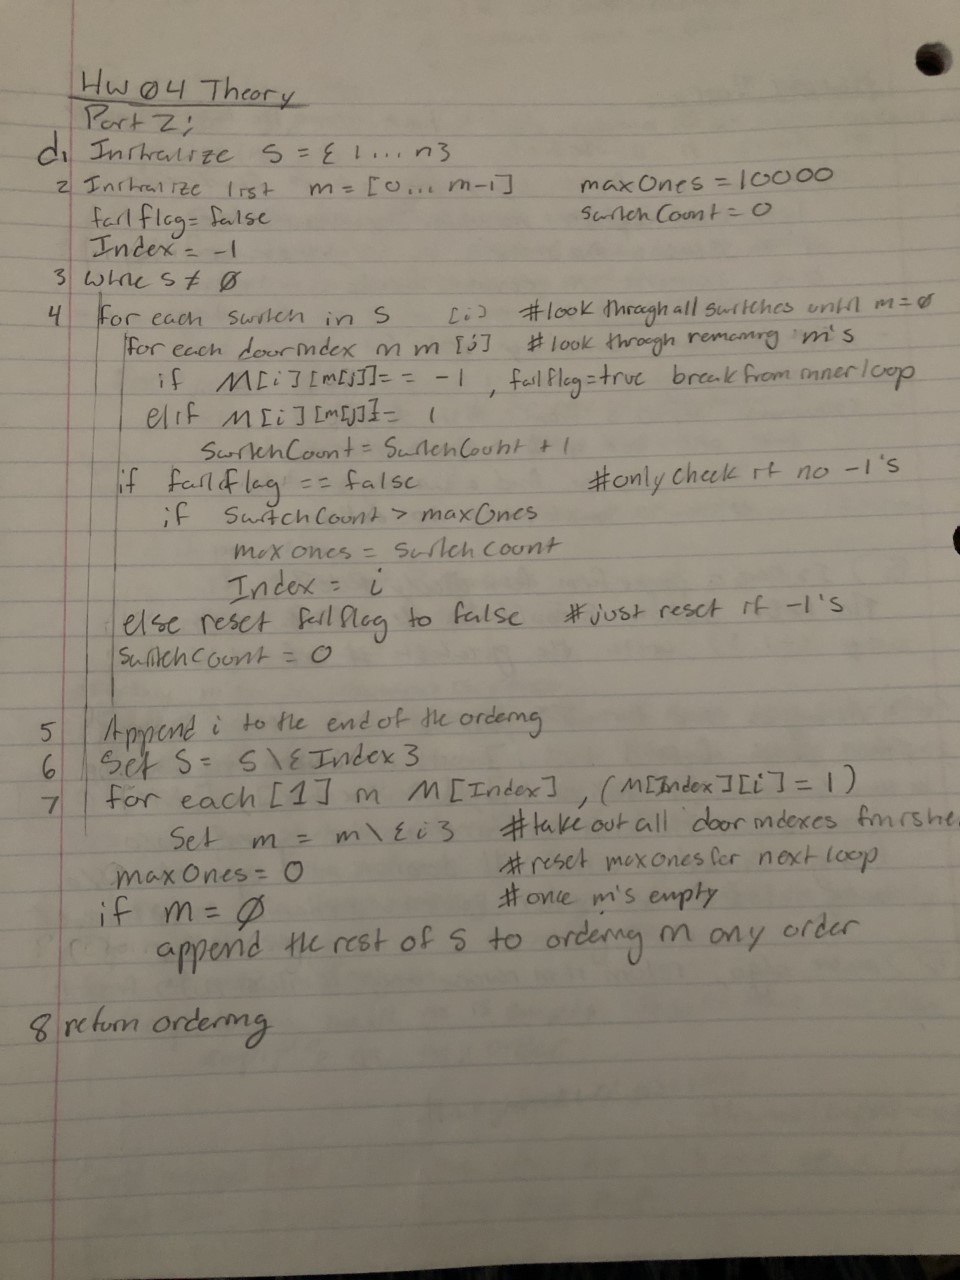 HW 04 Theory
Part 2;
d. Initialize S = { 1 ... n}
2 Initialize list m = [0 ... m-1] maxOnes = 10000
failflag = false switchCount = 0
Index = -1
3 while S ≠ ∅
4 for each switch in S [i] #look through all switches until m = ∅
for each doorindex in m [j] # look through remaining m's
if M[i][m[j]] = = -1 , failflag = true break from inner loop
elif M[i][m[j]] = 1
SwitchCount = SwitchCount + 1
if failflag == false #only check if no -1's
if SwitchCount > maxOnes
maxones = switchcount
Index = i
else reset failflag to false #just reset if -1's
switchcount = 0
5 Append i to the end of the ordering
6 Set S = S \ {Index}
7 for each [1] in M[Index] , (M[Index][i] = 1)
Set m = m \ {i} #take out all door indexes finishe
maxOnes = 0 #reset maxones for next loop
if m = ∅ #once m's empty
append the rest of S to ordering in any order
8 return ordering